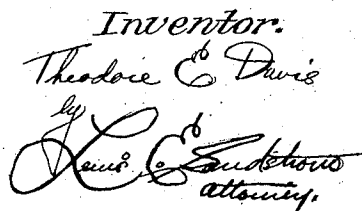 Inventor.
Theodore E Davis
by
Louis E Sandstrom
attorney.